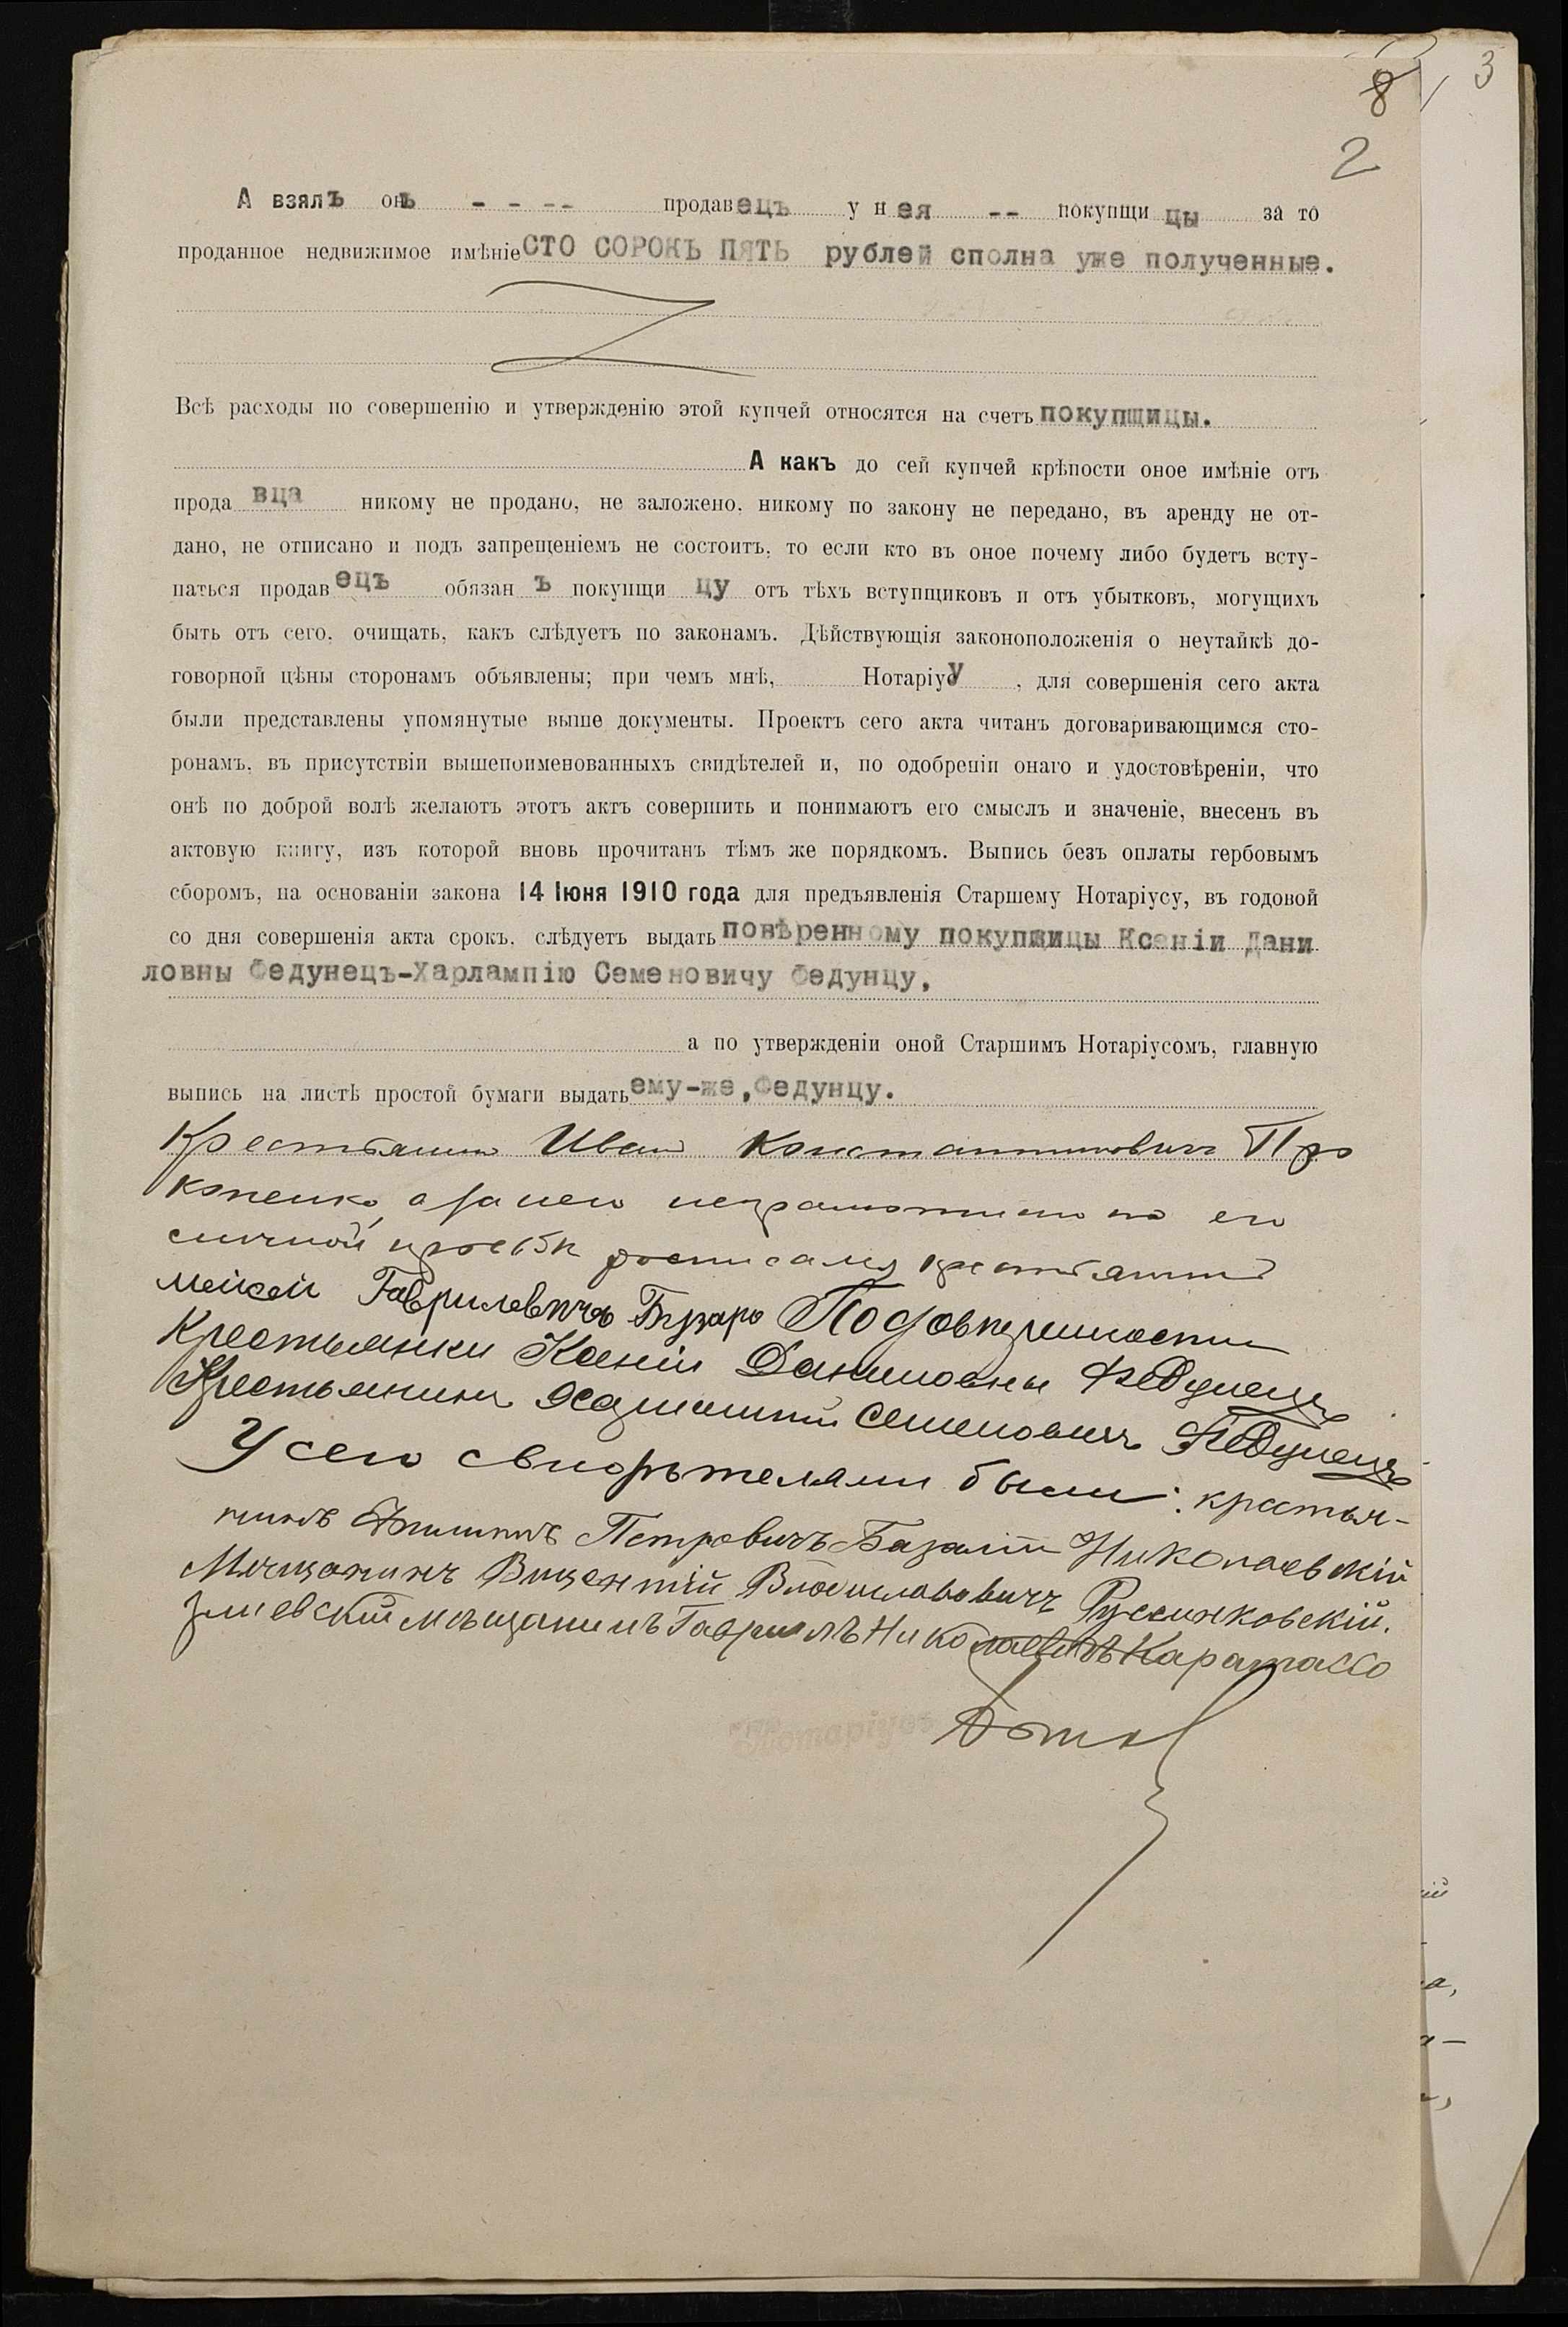 8
3
2
А взялъ онъ - - -- продавецъ у нея -- покупщицы за то
проданное недвижимое имѣніе СТО СОРОКЪ ПЯТЬ рублей сполна уже полученные.
Всѣ расходы по совершенію и утвержденію этой купчей относятся на счетъ покупщицы.
А какъ до сей купчей крѣпости оное имѣніе отъ
продавца никому не продано, не заложено, никому по закону не передано, въ аренду не от-
дано, не отписано и подъ запрещеніемъ не состоитъ, то если кто въ оное почему либо будетъ всту-
паться продавецъ обязанъ покупщицу отъ тѣхъ вступщиковъ и отъ убытковъ, могущихъ
быть отъ сего, очищать, какъ слѣдуетъ по законамъ. Дѣйствующія законоположенія о неутайкѣ до-
говорной цѣны сторонамъ объявлены; при чемъ мнѣ, Нотаріусу, для совершенія сего акта
были представлены упомянутые выше документы. Проектъ сего акта читанъ договаривающимся сто-
ронамъ, въ присутствіи вышепоименованныхъ свидѣтелей и, по одобреніи онаго и удостовѣреніи, что
онѣ по доброй волѣ желаютъ этотъ актъ совершить и понимаютъ его смыслъ и значеніе, внесенъ въ
актовую книгу, изъ которой вновь прочитанъ тѣмъ же порядкомъ. Выпись безъ оплаты гербовымъ
сборомъ, на основаніи закона 14 Іюня 1910 года для предъявленія Старшему Нотаріусу, въ годовой
со дня совершенія акта срокъ, слѣдуетъ выдать повѣренному покупщицы Ксеніи Дани
ловны Федунецъ-Харлампію Семеновичу Федунцу,
а по утвержденіи оной Старшимъ Нотаріусомъ, главную
выпись на листѣ простой бумаги выдать ему-же, Федунцу.
Крестьянинъ Иванъ Константиновичъ Про
копенко, а за него неграмотнаго по его
личной просьбѣ росписался крестьянинъ
Гавриловичъ По довѣренности
Крестьянки Ксеніи Даниловны Федунецъ
Крестьянинъ Харлампій Семеновичъ Федунецъ
У сего свидѣтелями были: крестья-
нинъ Филиппъ Петровичъ Базалій Николаевскій
Мѣщанинъ Викентій Владиславовичъ Руссияковскій.
Зміевскій мѣщанинъ Гавріилъ Николаевичъ
Нотаріусъ